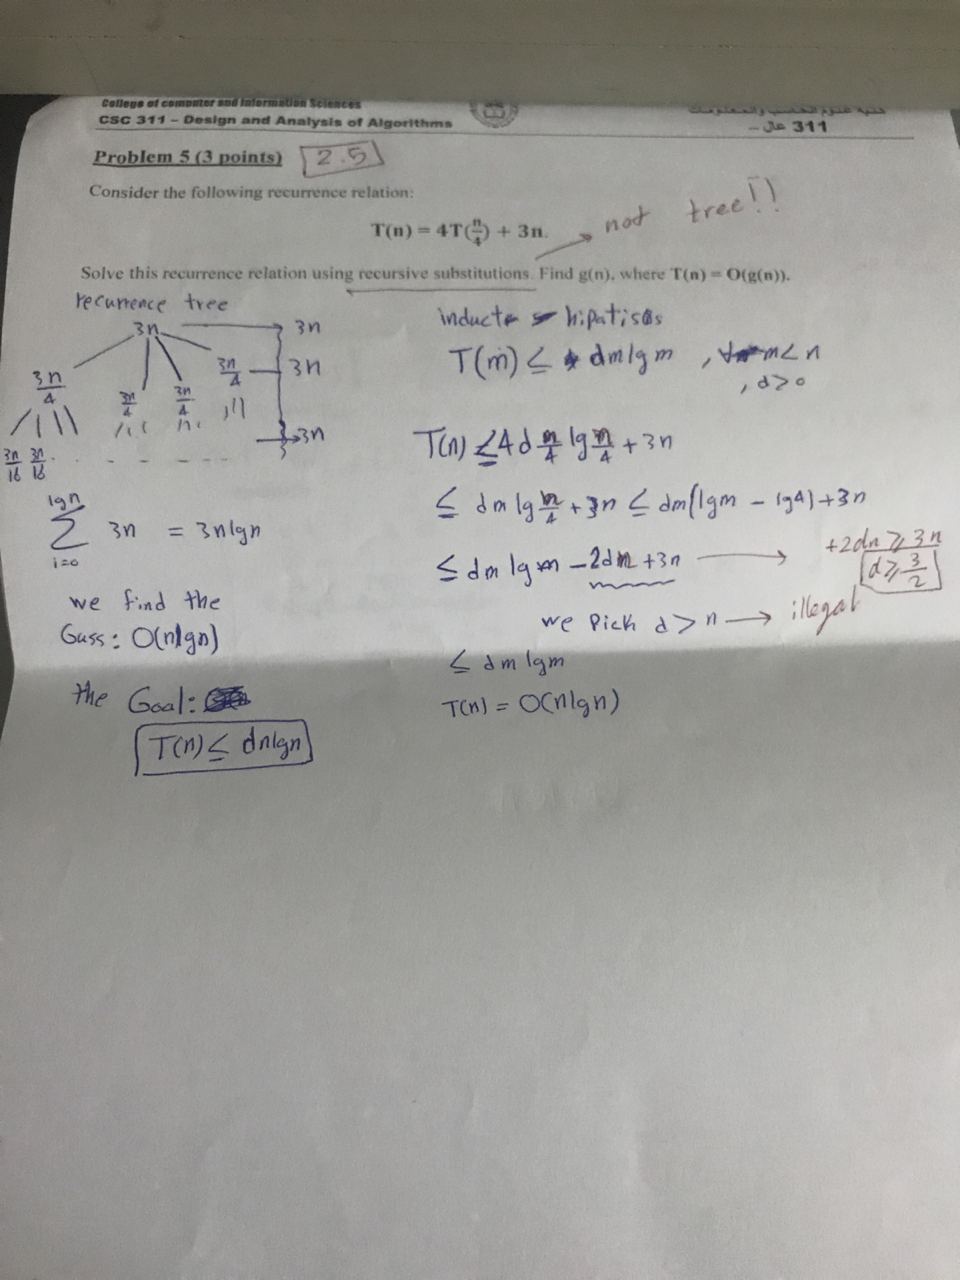 College of computer and Information Sciences
CSC 311 – Design and Analysis of Algorithms
كلية علوم الحاسب والمعلومات
311 عال –
Problem 5 (3 points) 2.5
Consider the following recurrence relation:
T(n) = 4T(n/4) + 3n.
not tree!!
Solve this recurrence relation using recursive substitutions. Find g(n), where T(n) = O(g(n)).
recurrence tree
3n 3n
3n/4 3n/4 3n/4 3n/4 3n
3n/16 3n/16 . - - - - 3n
lgn
∑ 3n = 3nlgn
i=0
we find the
Guss: O(nlgn)
the Goal:
T(n) ≤ dnlgn
hipatisas
T(m) ≤ dmlgm , m<n
, d>0
T(n) ≤ 4d n/4 lg n/4 + 3n
≤ dm lg n/4 + 3n ≤ dm(lgm - lg4) + 3n
≤ dm lg m - 2dn + 3n
+2dn ≥ 3n
d ≥ 3/2
we Pick d > n → illegal
≤ dm lgm
T(n) = O(nlgn)